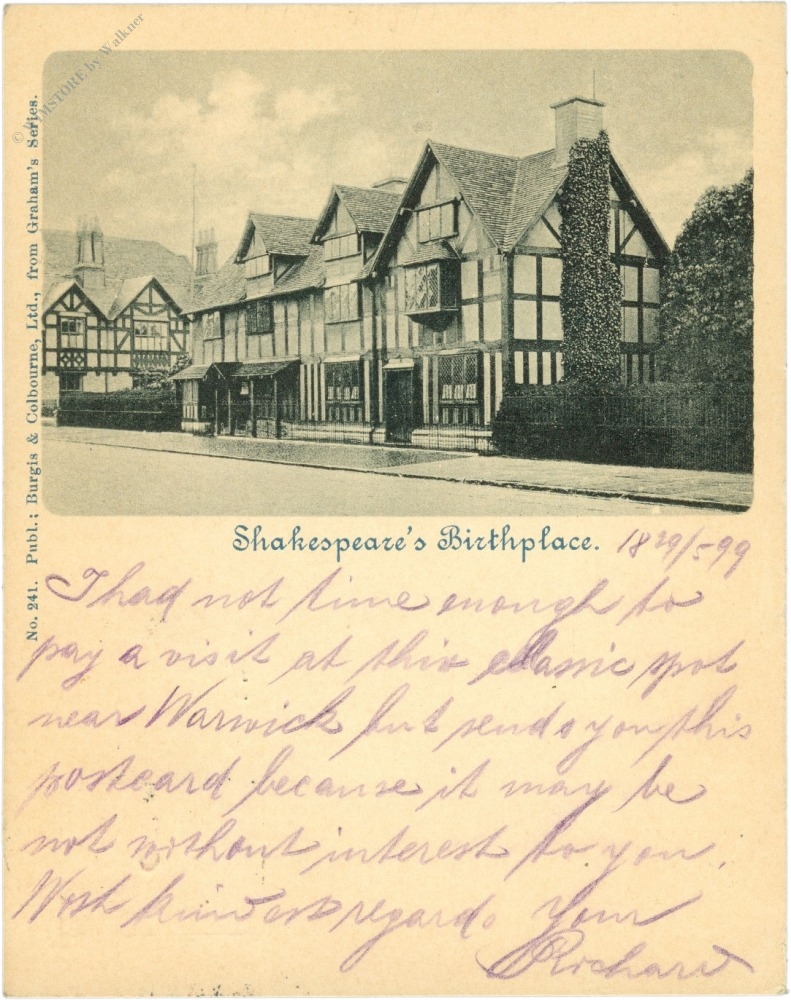 © FILMSTORE by Walkner
No. 241. Publ.: Burgis & Colbourne, Ltd., from Graham's Series.
Shakespeare's Birthplace.
18 29/5 99
I had not time enough to
pay a visit at this classic spot
near Warwick but send you this
postcard because it may be
not without interest to you.
With kindest regards Your
Richard